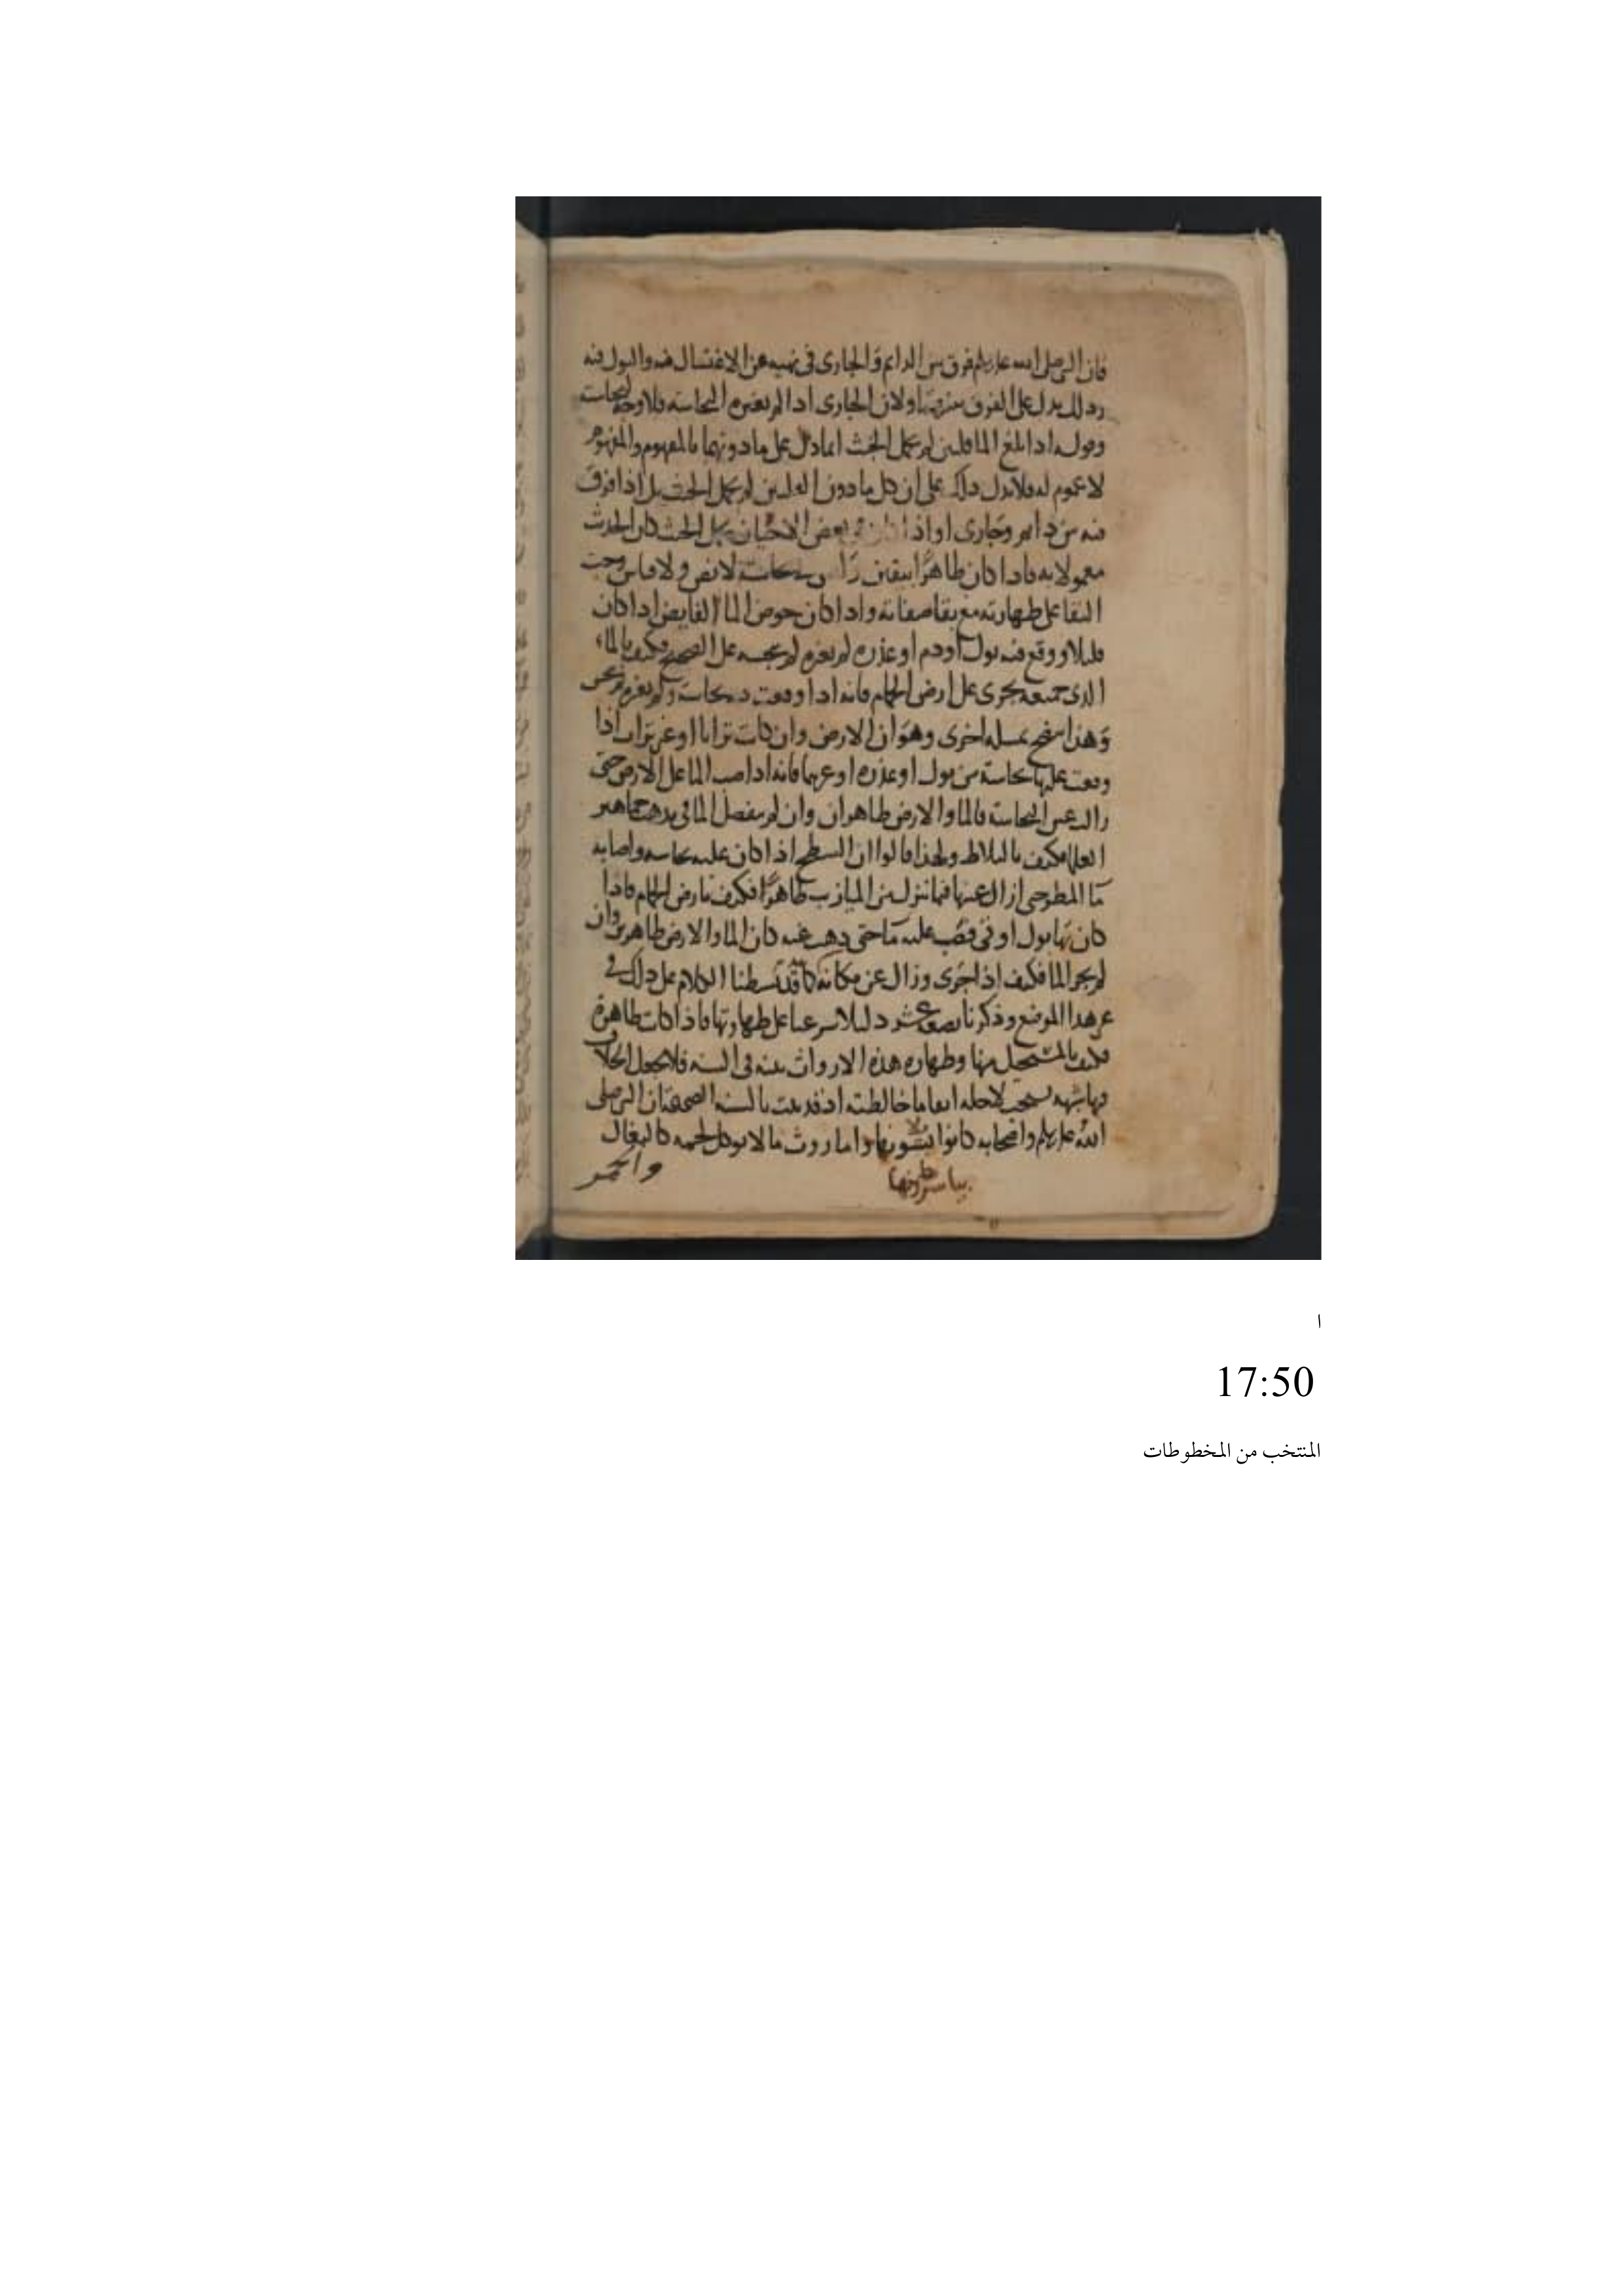 فان النبي صلى الله عليه وسلم فرق بين الدايم والجارى فى نهيه عن الاغتسال فيه والبول فيه
وذلك يدل على الفرق بينهما ولان الجارى اذا لم تغيره النجاسة فلا وجه لنجاسته
وقوله اذا بلغ الما قلتين لم يحمل الخبث انما دل على ما دونهما بالمفهوم والمفهوم
لا عموم له فلا يدل ذلك على ان كل ما دون القلتين يحمل الخبث بل اذا فرق
فيه بين دايم وجارى او اذا كان فى بعض الاحيان يحمل الخبث كان الحديث
معمولا به فاذا كان طاهرا بيقين لا نص ولا قياس وجب
البقا على طهارته مع بقا صفاته واذا كان حوض الما الفايض اذا كان
قليلا ووقع فيه بول او دم او عذره لم تغيره لم ينجسه على الصحيح فكيف بالماء
الذى جميعه يجرى على ارض الحمام فانه اذا وقعت نجاسة ولم تغيره لم ينجس
وهذا يتضح بمسله اخرى وهو ان الارض وان كانت ترابا او غير تراب اذا
وقعت عليها نجاسة من بول او عذره او غيرهما فانه اذا صب الما على الارض حتى
زالت عين النجاسة فالما والارض طاهران وان لم ينفصل الما فى مذهب جماهير
العلما فكيف بالبلاط ولهذا قالوا ان السطح اذا كان عليه نجاسه واصابه
ما المطر حتى ازال عينها فما نزل من الميازيب طاهرا فكيف بارض الحمام فاذا
كان بها بول او قى فصب عليه ما حتى ذهب عينه كان الما والارض طاهرين وان
لم يجر الما فكيف اذا جرى وزال عن مكانه كما قد بسطنا الكلام على ذلك فى
غير هذا الموضع وذكرنا بضعة عشر دليلا شرعيا على طهارتها فاذا كانت طاهرة
فكيف بالمستحيل منها وطهاره هذه الارواث بينه فى السنه فلا يجعل الخلاف
فيها شبهه يستحب لاجله اتقا ما خالطته اذ قد ثبت بالسنه الصحيحة ان النبي صلى
الله عليه وسلم واصحابه كانوا يلابسونها واما روث ما لا يوكل لحمه كالبغال
والحمير
ا
17:50
المنتخب من المخطوطات